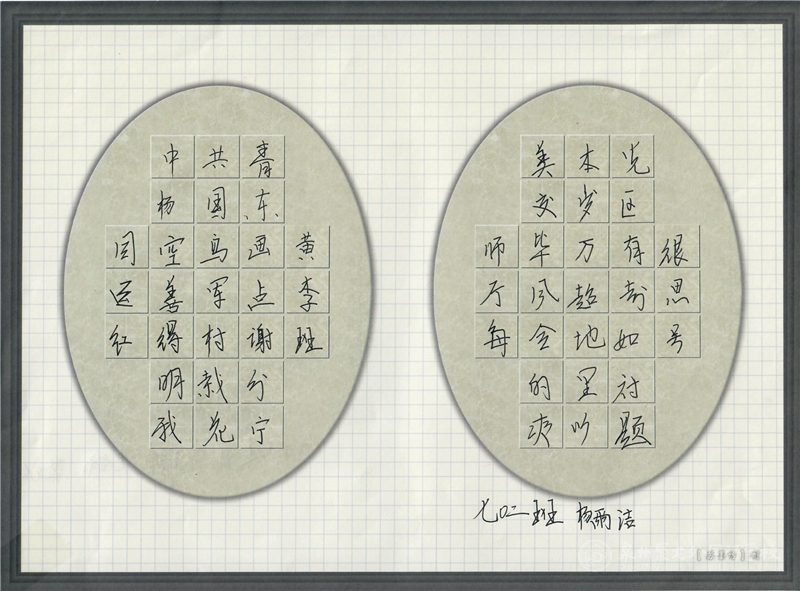 中共青
杨国东
同空鸟画黄
运善军点李
红得村谢班
明裁分
我花宁
美本光
交岁区
师毕万有很
厅风超奇思
每会地如号
的里村
爽吵题
七〇二班 杨雨洁